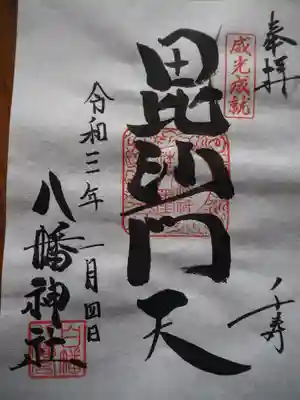 奉拝
威光成就
毘沙門天
令和三年一月四日
八幡神社